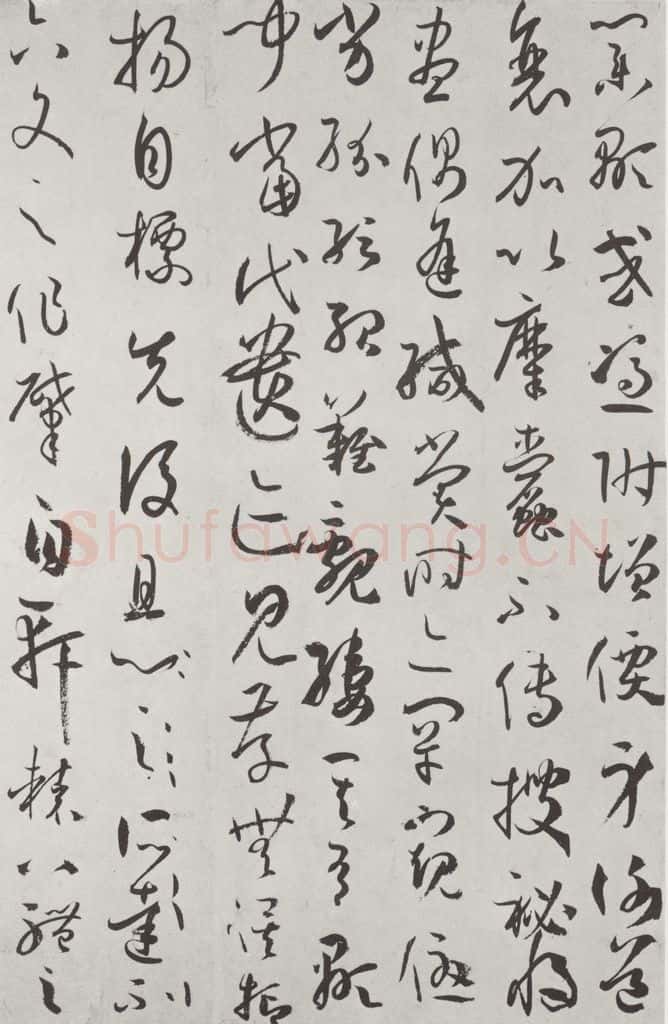 業顯或憑附增價身謝道
衰加以糜蠹不傳搜祕將
盡偶逢緘賞時亦罕窺優
劣紛紜殆難覼縷其有顯
聞當代遺跡見存無俟抑
揚自標先後且
六文之作肇自軒轅八體之
Shufawang.CN